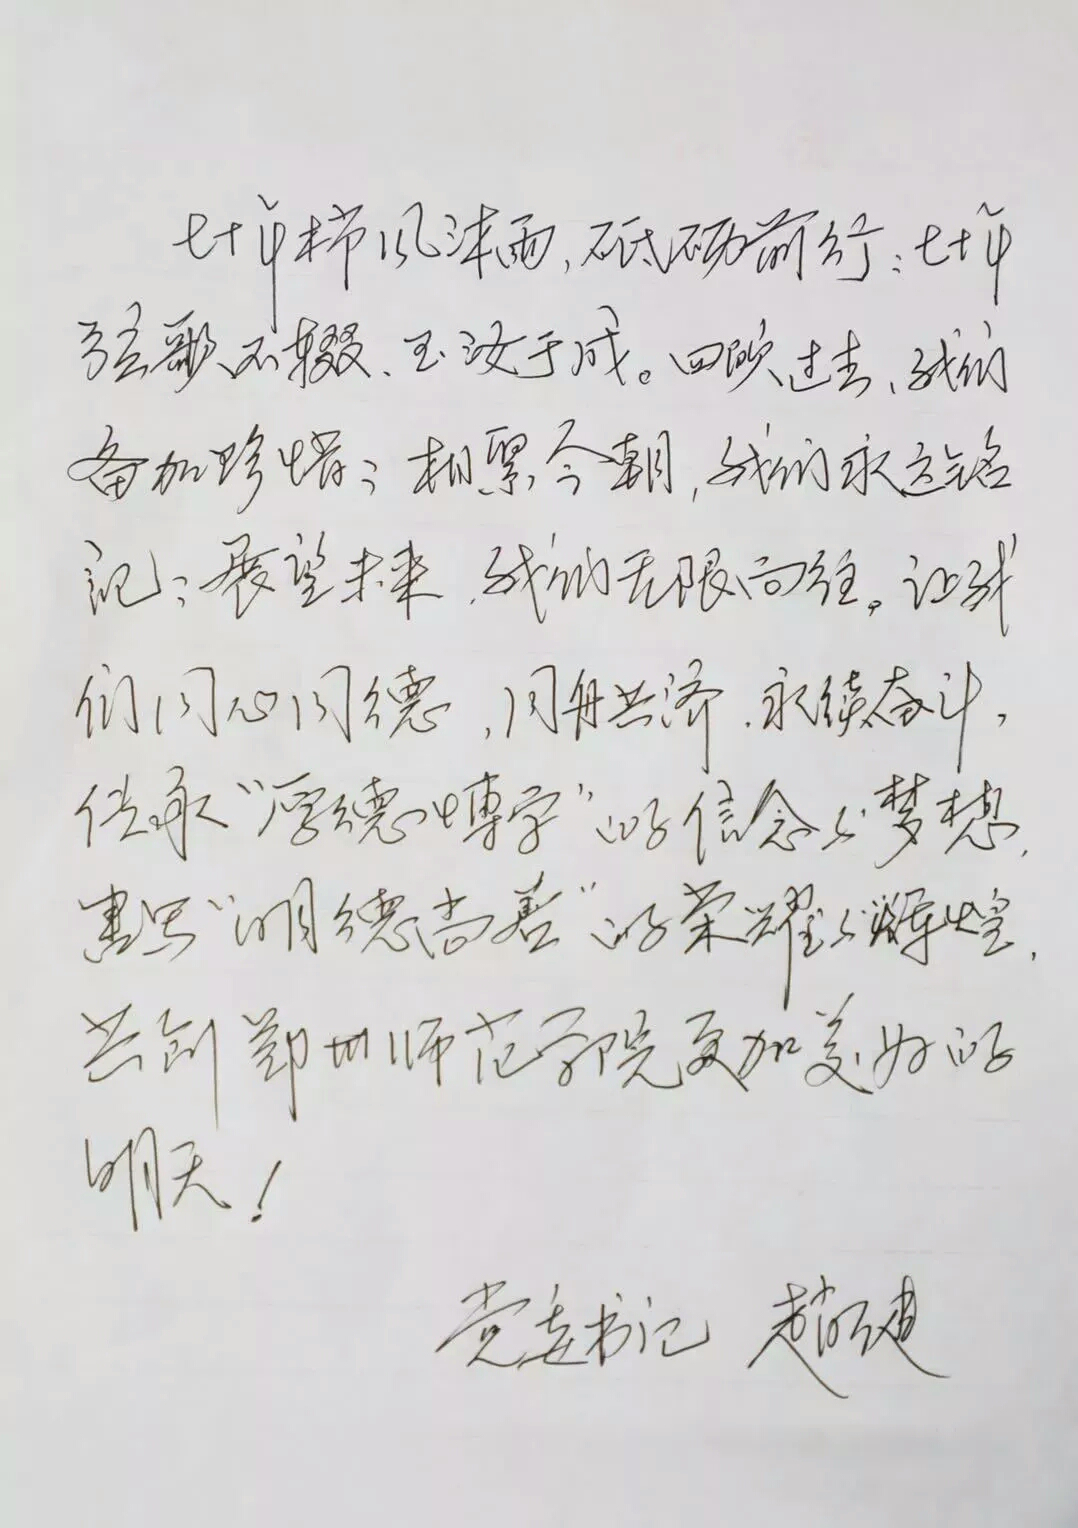 七十年栉风沐雨，砥砺前行；七十年
弦歌不辍、玉汝于成。回眸过去，我们
备加珍惜；相聚今朝，我们永远铭
记；展望未来，我们无限向往。让我
们同心同德，同舟共济，永续奋斗，
传承“厚德博学”的信念与梦想，
书写“明德尚善”的荣耀与辉煌，
共创郑州师范学院更加美好的
明天！
党委书记 赵健